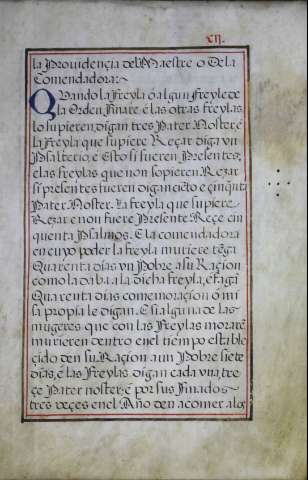 XII.
la Providençia del Maestre o De la
Comendadora:~
QVando la Freyla ò algun Freyle de
la Orden Finare, e las otras Freylas
lo supieren, digan tres Pater Noster, e
la Freyla que supiere Reçar diga vn
Psalterio, e Esto si fueren Presentes,
e las freylas que non sopieren Rezar
si presentes fueren digan ciēto e çinquēta
Pater Noster. La freyla que supiere
Rezar e non fuere Presente Reçe çin
quenta Psalmos. E la comendadora
en cuyo poder la freyla muriere tēga
Quarenta dias vn Pobre a su Raçion
como la daba a la dicha freyla, e faga
Quarenta dias comemoraçion ò mi
sa propia le digan. E si alguna de las
mugeres que con las Freylas moraré
murieren dentro en el tiempo estable
çido den su Raçion a un Pobre siete
dias, e las Freylas digan cada vna tre
çe Pater noster, e por sus Finados
tres veçes en el Año den a comer a los